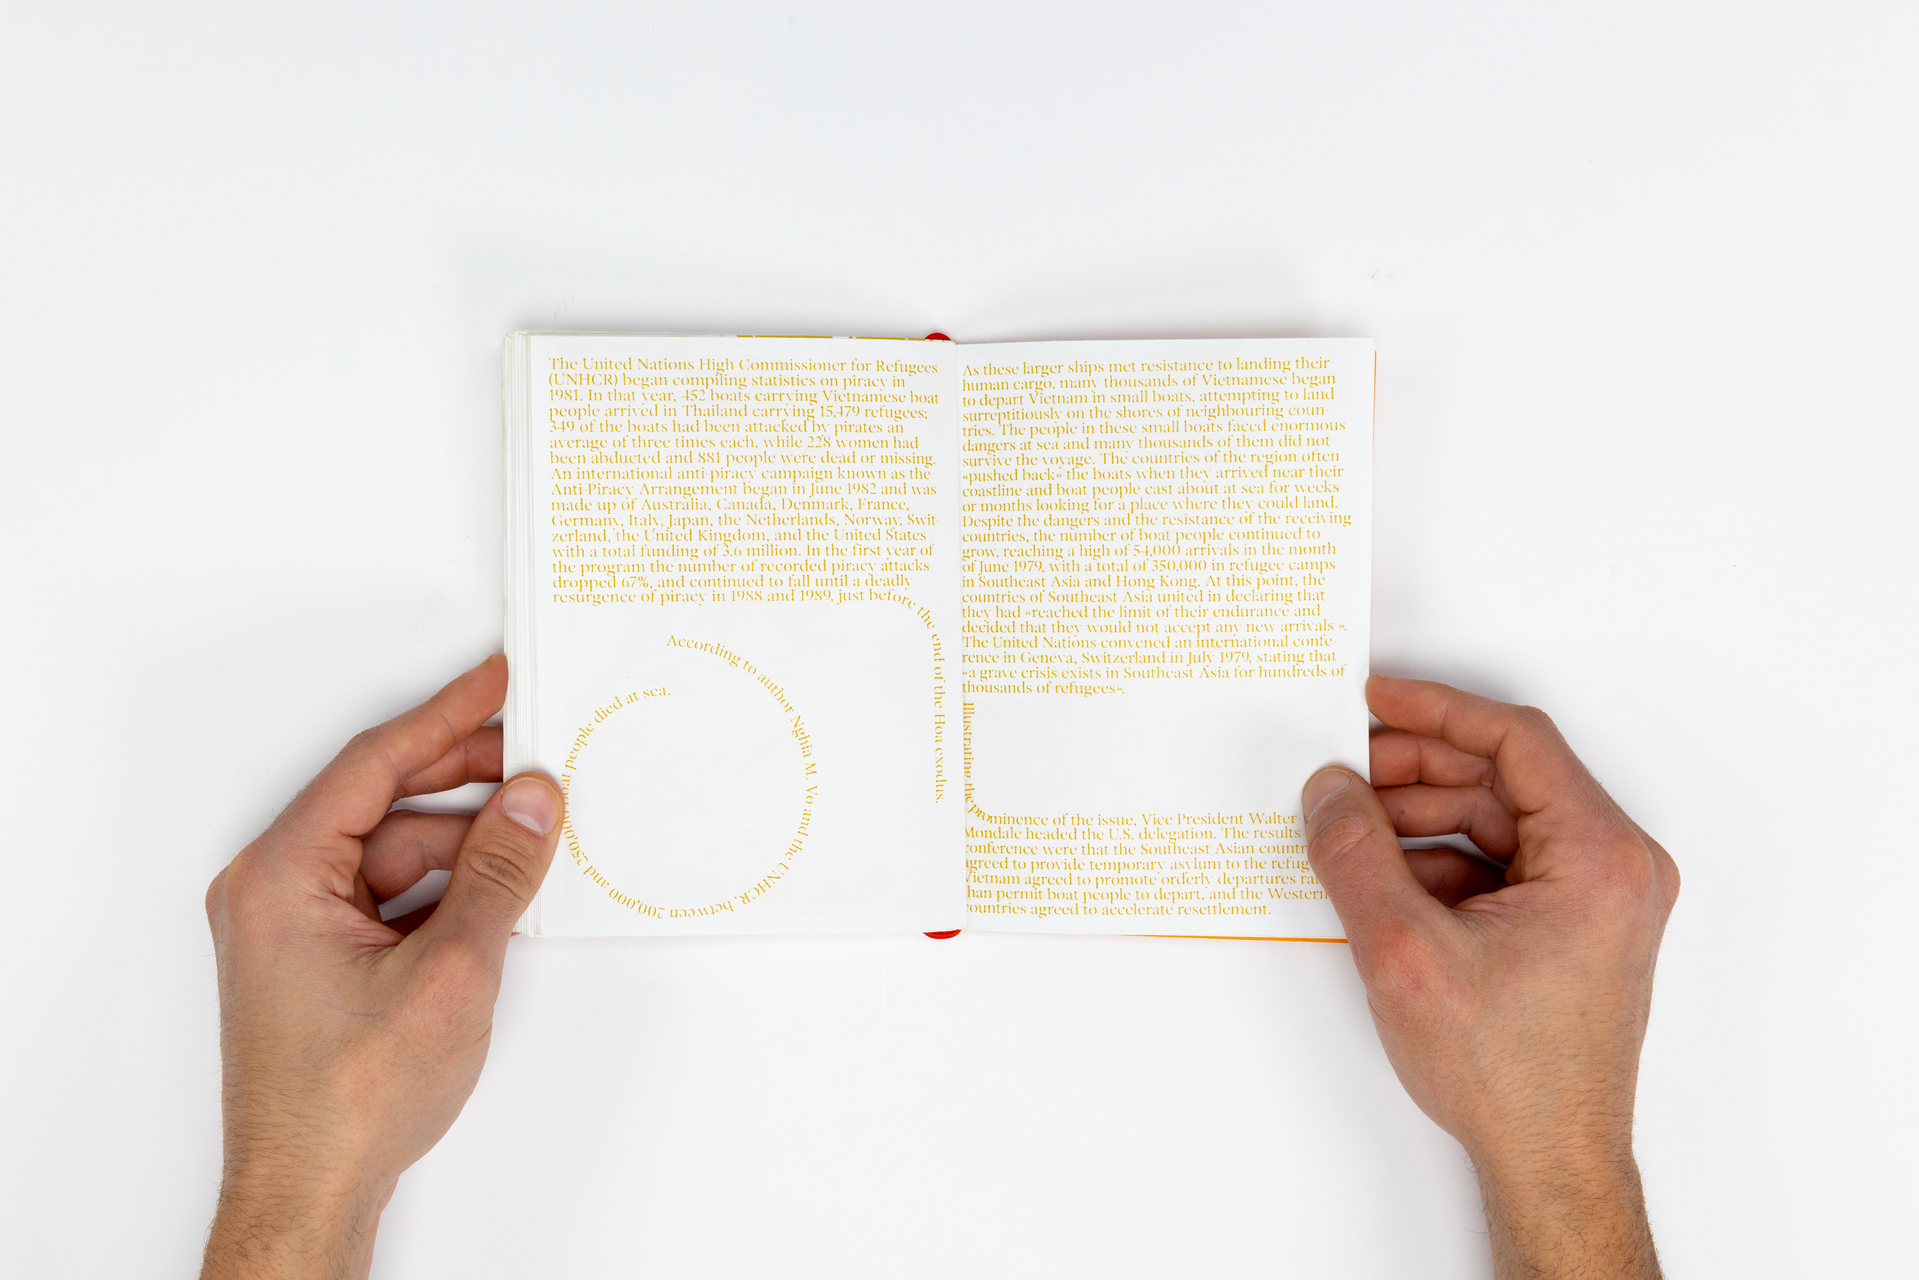 The United Nations High Commissioner for Refugees
(UNHCR) began compiling statistics on piracy in
1981. In that year, 452 boats carrying Vietnamese boat
people arrived in Thailand carrying 15,479 refugees;
349 of the boats had been attacked by pirates an
average of three times each, while 228 women had
been abducted and 881 people were dead or missing.
An international anti-piracy campaign known as the
Anti-Piracy Arrangement began in June 1982 and was
made up of Australia, Canada, Denmark, France,
Germany, Italy, Japan, the Netherlands, Norway, Swit-
zerland, the United Kingdom, and the United States
with a total funding of 3.6 million. In the first year of
the program the number of recorded piracy attacks
dropped 67%, and continued to fall until a deadly
resurgence of piracy in 1988 and 1989, just before the end of the Hoa exodus.
According to author Nghia M. Vo and the UNHCR, between 200,000 and 250,000 boat people died at sea.
As these larger ships met resistance to landing their
human cargo, many thousands of Vietnamese began
to depart Vietnam in small boats, attempting to land
surreptitiously on the shores of neighbouring coun-
tries. The people in these small boats faced enormous
dangers at sea and many thousands of them did not
survive the voyage. The countries of the region often
«pushed back» the boats when they arrived near their
coastline and boat people cast about at sea for weeks
or months looking for a place where they could land.
Despite the dangers and the resistance of the receiving
countries, the number of boat people continued to
grow, reaching a high of 54,000 arrivals in the month
of June 1979, with a total of 350,000 in refugee camps
in Southeast Asia and Hong Kong. At this point, the
countries of Southeast Asia united in declaring that
they had «reached the limit of their endurance and
decided that they would not accept any new arrivals ».
The United Nations convened an international confe-
rence in Geneva, Switzerland in July 1979, stating that
«a grave crisis exists in Southeast Asia for hundreds of
thousands of refugees«.
Illustrating the prominence of the issue, Vice President Walter
Mondale headed the U.S. delegation. The results
conference were that the Southeast Asian countr
agreed to provide temporary asylum to the refug
Vietnam agreed to promote orderly departures ra
than permit boat people to depart, and the Western
countries agreed to accelerate resettlement.